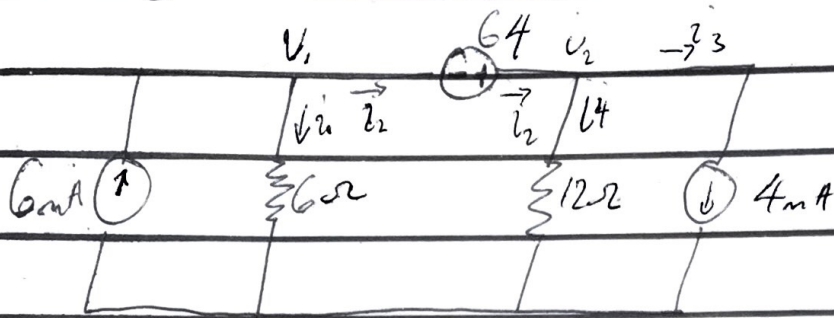 64
V₁ - + U₂ → i₃
↓ i₁ → i₂ → i₂ i4
6mA ↑ 6Ω 12Ω ↓ 4mA